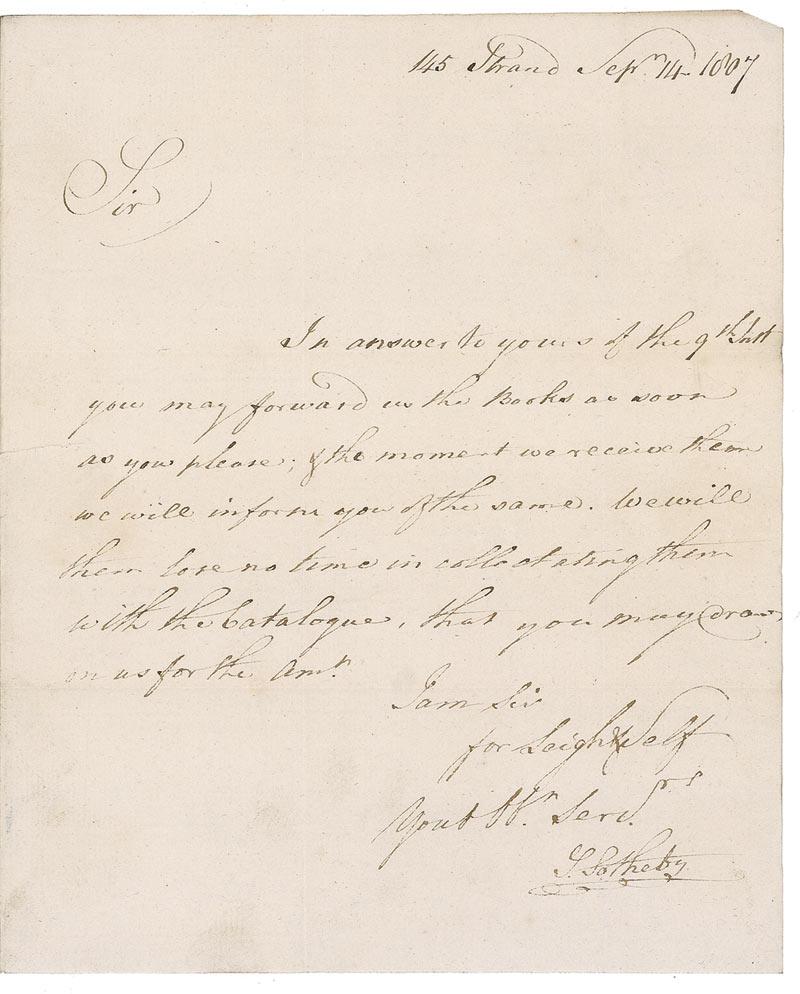 145 Strand Sepr. 14 1807
Sir
In answer to yours of the 9th Inst
you may forward us the Books as soon
as you please; & the moment we receive them
we will inform you of the same. We will
then lose no time in collectating them
with the Catalogue, that you may draw
on us for the Amt.
I am Sir
for Leigh & Self
Your Serv.
S. Sotheby